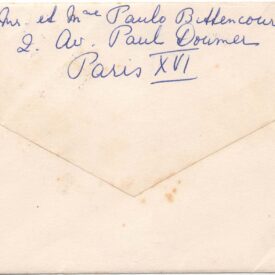 Mr. et Mme Paulo Bittencour
2. Av. Paul Doumer
Paris XVI